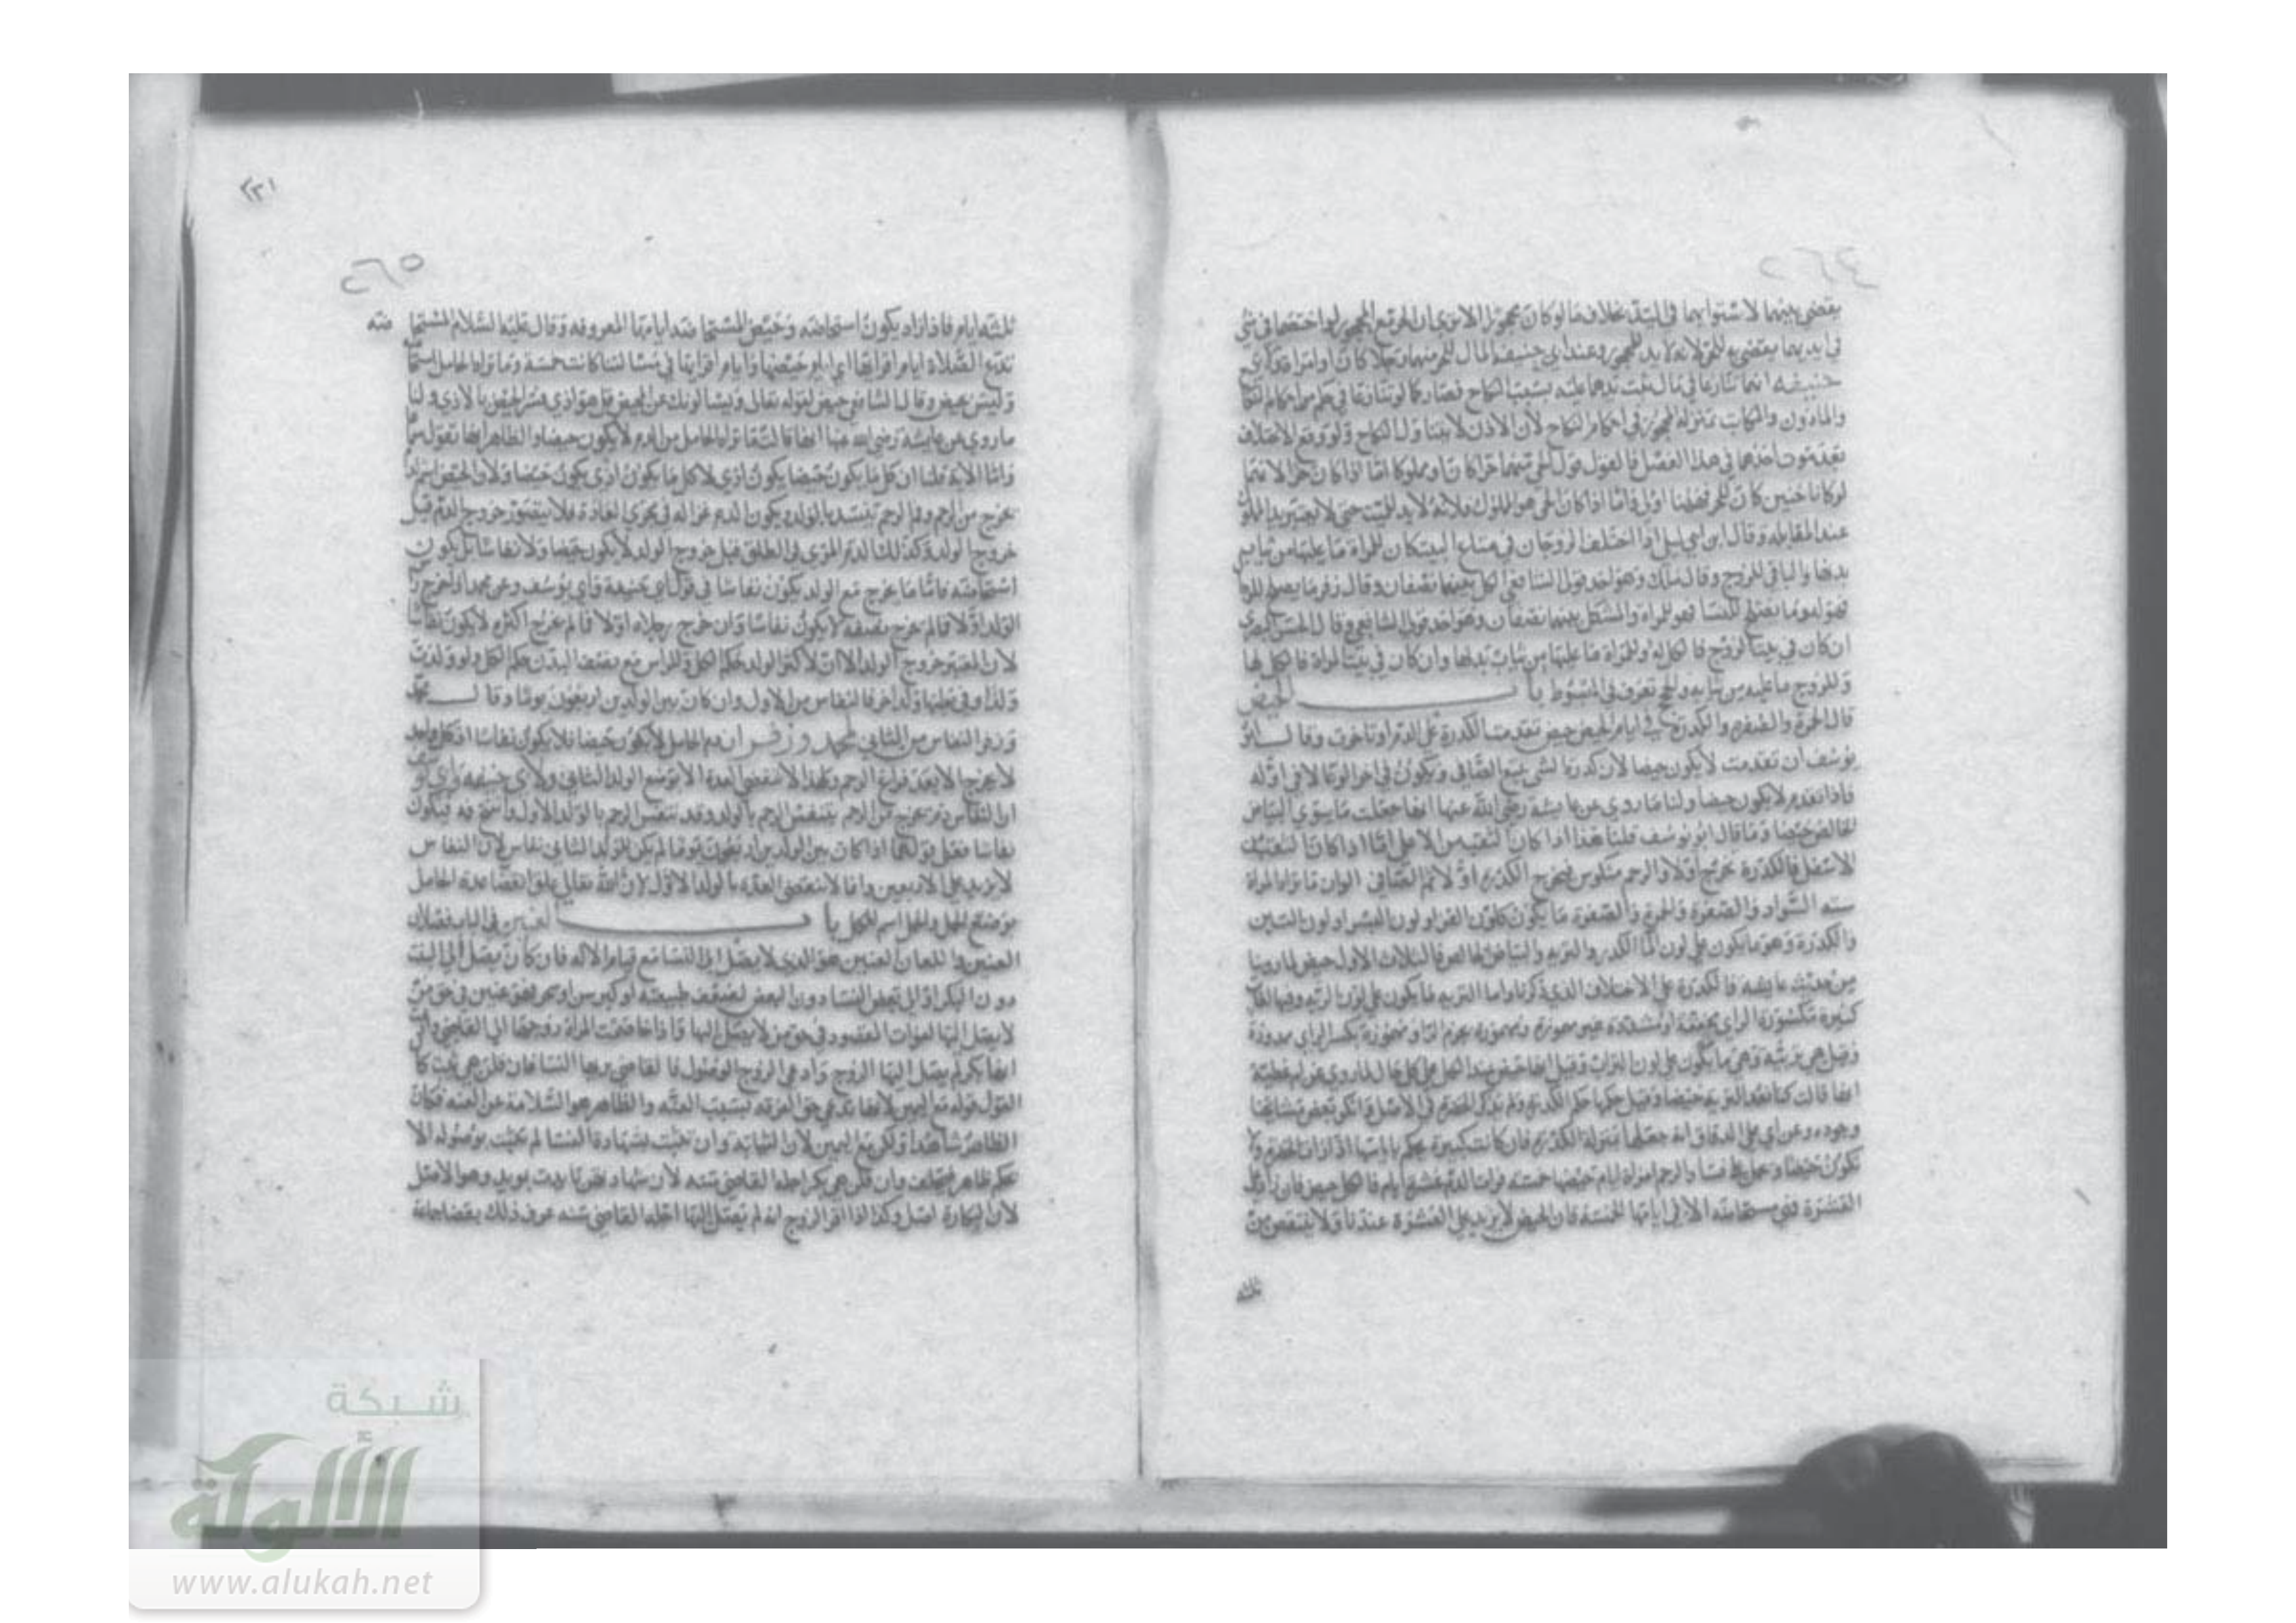 ٢٦٤
يقضي بينهما لاستوائهما في اليد بخلاف ما لو كان محجورا لانه يد ان الحر مع المحجور لو اختصما في شي
في ايديهما يقضي به للحر لانه لا يد للمحجور وعند ابي حنيفه المال للحر منهما رجلا كان او امراة
حنيفه انهما تنازعا في مال ثبت يدهما عليه بسبب النكاح فصار كما لو تنازعا في حكم من احكام النكاح
والماذون والمكاتب بمنزلة المحجور في احكام النكاح لان الاذن لا يتناول النكاح ولو وقع الاختلاف
بعد موت احدهما في هذا الفصل فالقول قول الحي منهما حرا كان او مملوكا اما اذا كان حرا لانهما
لو كانا حيين كان للحر فهاهنا اولى واما اذا كان الحي هو المملوك فلانه لا يد للميت حتى لا يعتبر يد المملوك
عند المقابله وقال ابن ابي ليلى اذا اختلف الزوجان في متاع البيت كان للمراة ما عليها من ثياب
بدنها والباقي للزوج وقال مالك وهو احد قولي الشافعي الكل بينهما نصفان وقال زفر ما يصلح للرجال
فهو له وما يصلح للنسا فهو للمراه والمشكل بينهما نصفان وهو احد قولي الشافعي وقال الحسن البصري
ان كان في بيت الزوج فالكل له وللمراة ما عليها من ثياب بدنها وان كان في بيت المراة فالكل لها
وللزوج ما عليه من ثيابه والحجج تعرف في المبسوط باب الحيض
قال الحمرة والصفرة والكدرة في ايام الحيض حيض تقدمت الكدرة على الدم او تاخرت وقال ابو
يوسف ان تقدمت لا يكون حيضا لان كدرة الشي تتبع الصافي ويكون في اخره لا في اوله
فاذا تقدم لا يكون حيضا ولنا ما روي عن عايشة رضي الله عنها انها جعلت ما سوى البياض
الخالص حيضا وما قال ابو يوسف قلنا هذا اذا كان الثقب من الاعلى اما اذا كان الثقب من
الاسفل فالكدرة تخرج اولا والرحم منكوس فيخرج الكدر اولا ثم الصافي الوان ما تراه المراة
سته السواد والصفرة والحمرة والصفرة ما يكون كلون القز او لون البسر او لون التبن
والكدرة وهو ما يكون على لون الما الكدر والتربة والبياض الخالص فالثلاث الاول حيض لما روينا
من حديث عايشه فالكدرة على الاختلاف الذي ذكرنا واما التربيه فما يكون على لون الرية وفيها لغات
وقيل هي تربيه وهي ما يكون على لون التراب وقيل انها حيض عند الكل على كل حال لما روي عن ام عطيه
انها قالت كنا نعد التربه حيضا وقيل حكمها حكم الكدرة ولم يذكر الخضرة في الاصل وانكر بعض مشايخنا
وجوده وعن ابي علي الدقاق انه جعلها بمنزلة الكدرة فان كانت كبيرة يحكم باياسها اذا رات الخضرة ولا
يكون حيضا امراة ايام حيضها خمسه فرات الدم عشرة ايام فالكل حيض فان زاد على
العشرة فهي مستحاضه الا في ايامها الخمسة فان الحيض لا يزيد على العشرة عندنا ولا ينقص من
ثلثه
٢٣١
٢٦٥
ثلثه ايام فاذا زاد يكون استحاضه وحيض المستحاضه ايامها المعروفه وقال عليه السلام المستحاضه
تدع الصلاة ايام اقرائها اي ايام حيضها وايام اقرائها في مسئلتنا كانت خمسة وما تراه الحامل استحاضة
وليس بحيض وقال الشافعي حيض لقوله تعالى ويسالونك عن المحيض قل هو اذى فسر الحيض بالاذى ولنا
ما روي عن عايشه رضي الله عنها انها قالت ما تراه الحامل من الدم لا يكون حيضا والظاهر انها تقول سماعا
واما الاية قلنا ان كل ما يكون حيضا يكون اذى لا كل ما يكون اذى يكون حيضا ولان الحيض اسم لدم
يخرج من الرحم وفم الرحم ينسد بالولد ويكون الدم غذاله في مجرى العادة فلا يتصور خروج الدم قبل
خروج الولد وكذلك الدم المري في الطلق قبل خروج الولد لا يكون حيضا ولا نفاسا بل يكون
استحاضه فاما ما يخرج مع الولد يكون نفاسا في قول ابي حنيفة وابي يوسف وعن محمد اذا خرج راس
الولد اولا فما لم يخرج نصفه لا يكون نفاسا وان خرج رجلاه اولا فما لم يخرج اكثره لا يكون نفاسا
لان المعتبر خروج الولد الا ان لاكثر الولد حكم الكل وللراس مع نصف البدن حكم الكل ولو ولدت
ولدا وفي بطنها ولد اخر فالنفاس من الاول وان كان بين الولدين اربعون يوما وقال محمد
وزفر النفاس من الثاني لمحمد وزفر ان دم الحامل لا يكون حيضا فلا يكون نفاسا اذ كل واحد
لا يخرج الا بعد فراغ الرحم ولهذا لا تنقضي العدة الا بوضع الولد الثاني ولابي حنيفه وابي يوسف
ان النفاس دم يخرج من الرحم بتنفس الرحم بالولد وقد تنفس الرحم بالولد الاول وانفتح فمه فيكون
نفاسا فعلى قولهما اذا كان بين الولدين اربعون يوما لم يكن للولد الثاني نفاس لان النفاس
لا يزيد على الاربعين وانما لا تنقضي العدة بالولد الاول لان الله تعالى علق انقضا عدة الحامل
بوضع الحمل والحمل اسم للكل باب العنين في الباب فصلان
العنين واللعان العنين هو الذي لا يصل الى النسا مع قيام الاله فان كان يصل الى الثيب
دون البكر او الى بعض النسا دون البعض لضعف طبيعته او كبر سن او سحر فهو عنين في حق من
لا يصل اليها لفوات المقصود في حق من لا يصل اليها واذا خاصمت المراة زوجها الى القاضي وادعت
انها بكر لم يصل اليها الزوج وادعى الزوج الوصول فالقاضي يريها النسا فان قلن هي ثيب كان
القول قوله مع اليمين لانها تدعي حق الفرقه بسبب العنة والظاهر هو السلامة عن العنه فكان
الظاهر شاهدا له ولكن مع اليمين لان الثيابه وان تثبت بشهادة النسا لم يثبت بوصوله الا
بحكم ظاهر فيحلف وان قلن هي بكر اجله القاضي سنه لان شهادتهن تايدت بمؤيد وهو الاصل
لان البكارة اصل وكذا اذا اقر الزوج انه لم يصل اليها اجله القاضي سنه عرف ذلك بقضا جماعة
شبكة
الألوكة
www.alukah.net